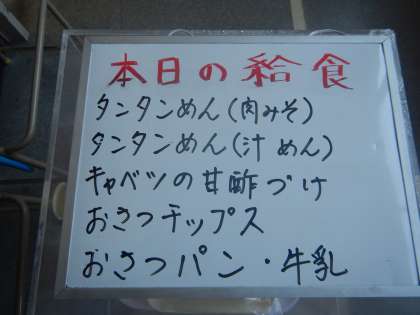 本日の給食
タンタンめん(肉みそ)
タンタンめん(汁めん)
キャベツの甘酢づけ
おさつチップス
おさつパン・牛乳